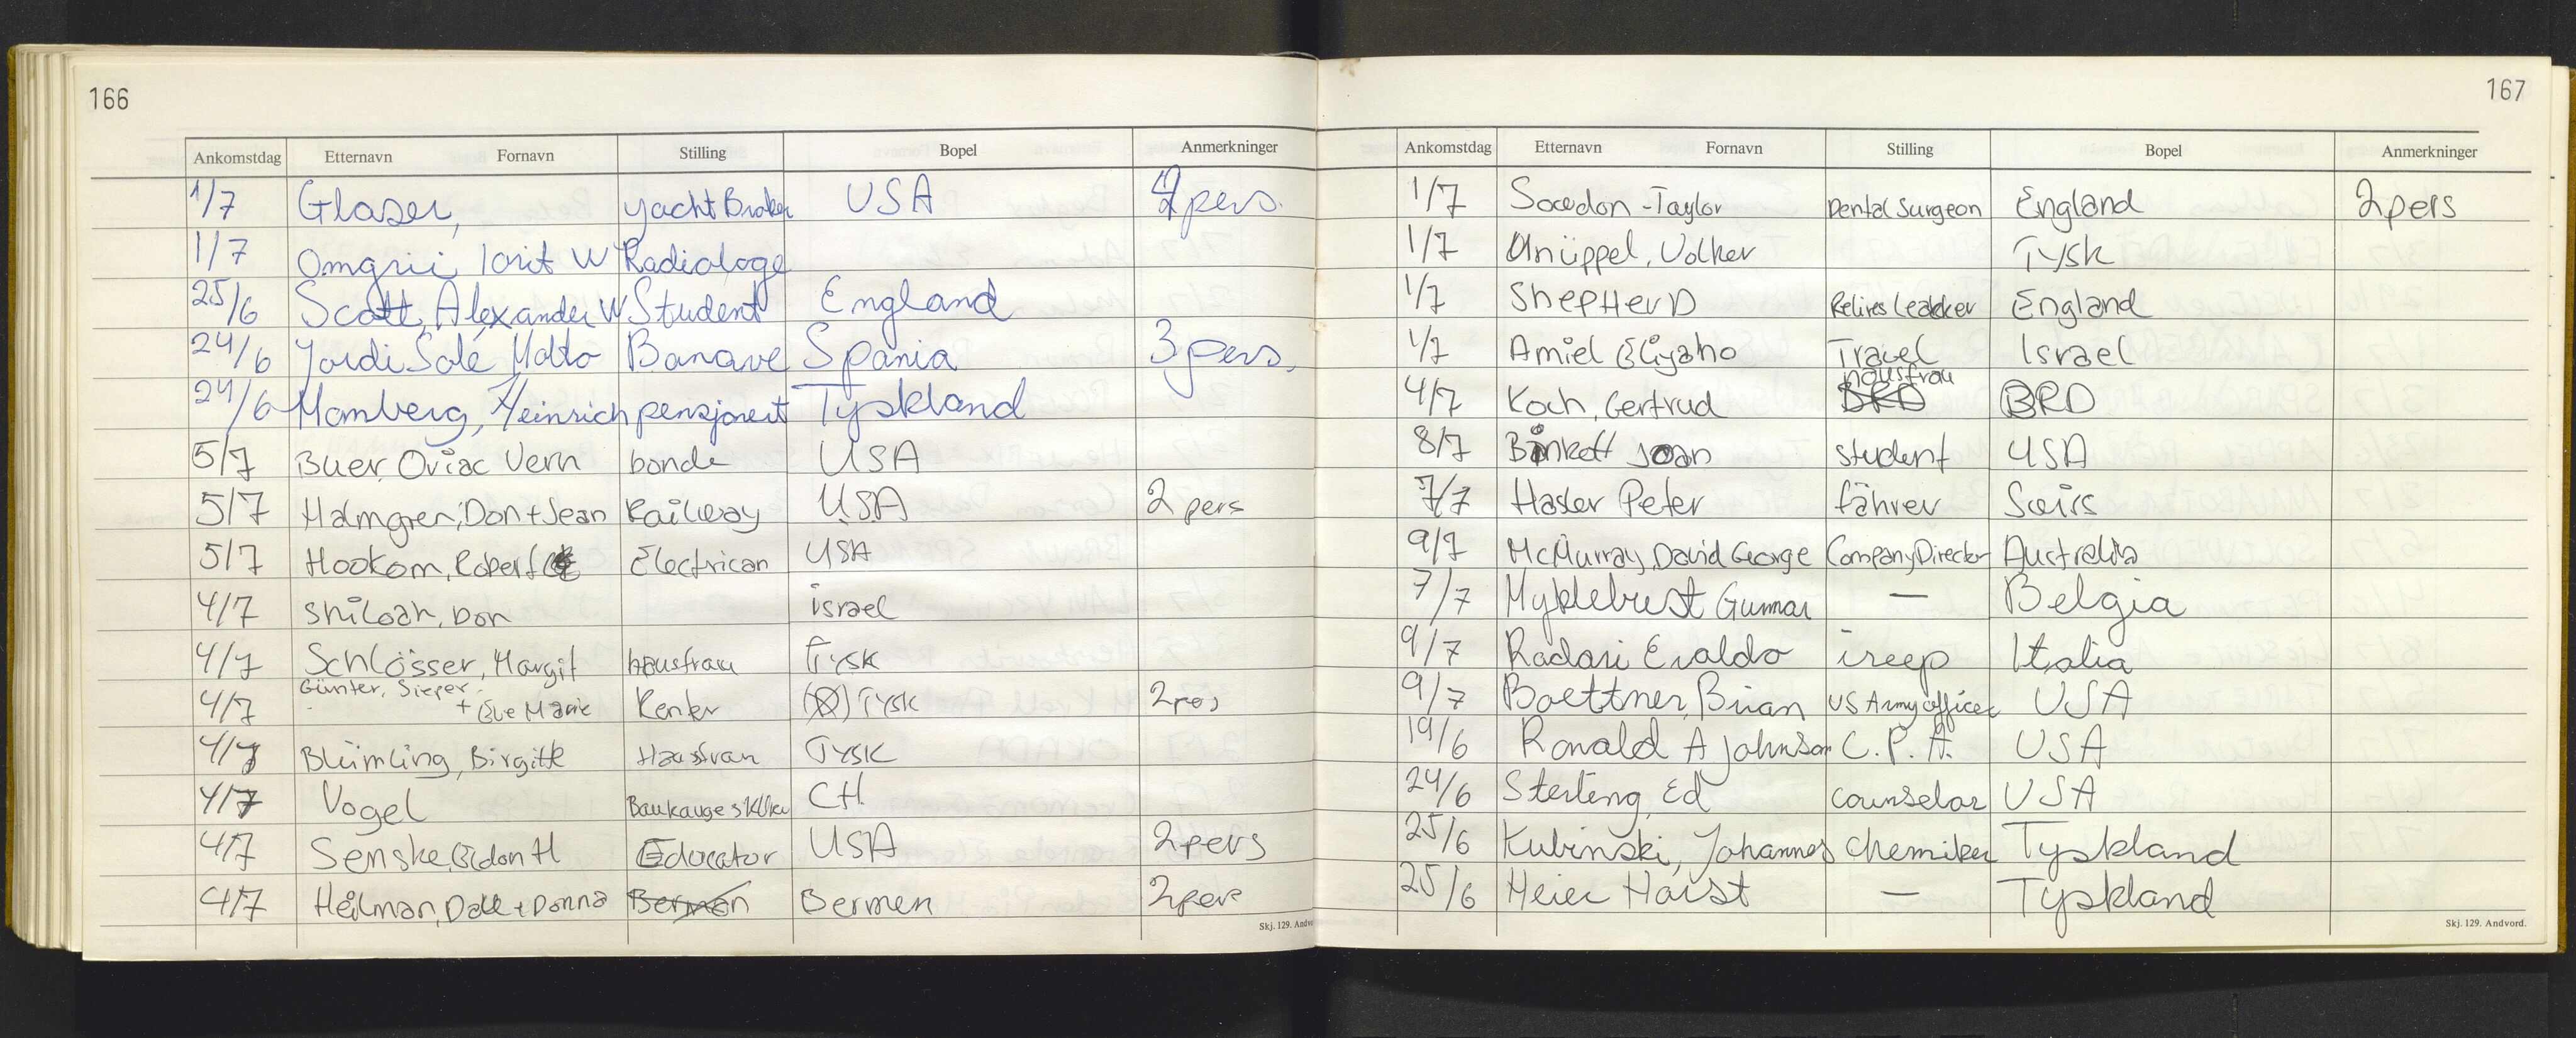 166
Ankomstdag Etternavn Fornavn Stilling Bopel Anmerkninger
1/7 Glaser, yacht Broker USA 2 pers.
1/7 Omgrii W Radiologe
25/6 Scott, Alexander W Student England
24/6 Jordi Solé Molto Banave Spania 3 pers.
24/6 Momberg, Heinrich pensjonert Tyskland
5/7 Buer, Oviac Vern bonde USA
5/7 Halmgren, Don + Jean Railway USA 2 pers
5/7 Hookom, Robert Electrican USA
4/7 Shiloah, Don israel
4/7 Schlösser, Margit hausfrau Tysk
4/7 Günter, Sieper + Eve Marie Renter Tysk 2 pers
4/7 Blümling, Birgitt Hausfrau Tysk
4/7 Vogel CH
4/7 Senske, Eldon H Educator USA 2 pers
4/7 Heilman, Dale + Donna Bermen Bermen 2 pers
Skj. 129. Andvo
167
Ankomstdag Etternavn Fornavn Stilling Bopel Anmerkninger
1/7 Sowdon-Taylor Dental Surgeon England 2 pers
1/7 Knüppel, Volker Tysk
1/7 ShepHerD England
1/7 Amiel Eliyaho Travel Israel
4/7 Koch, Gertrud BRD hausfrau BRD
8/7 Binkett Joan student USA
7/7 Hasler Peter fährer Sveits
9/7 McMurray, David George Company Director Australia
7/7 Myklebust Gunnar — Belgia
9/7 Radari Evaldo ireep Italia
9/7 Boettner, Brian US Army officer USA
19/6 Ronald A Johnson C. P. A. USA
24/6 Sterling, Ed counselor USA
25/6 Kubinski, Johannes chemiker Tyskland
25/6 Meier Horst — Tyskland
Skj. 129. Andvord.